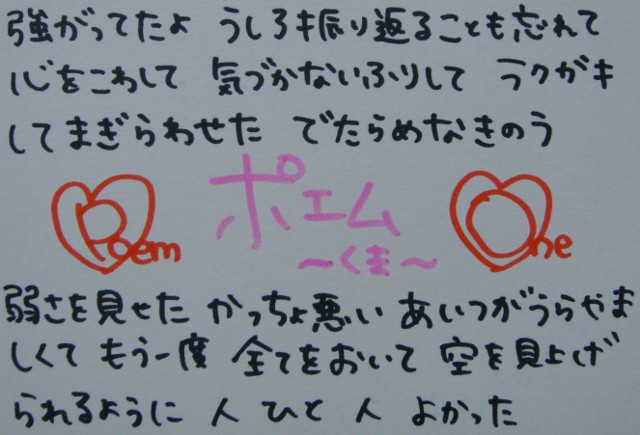 強がってたよ うしろ振り返ることも忘れて
心をこわして 気づかないふりして ラクガキ
してまぎらわせた でたらめなきのう
Poem ポエム One
～くま～
弱さを見せた かっちょ悪い あいつがうらやま
しくて もう一度 全てをおいて 空を見上げ
られるように 人 ひと 人 よかった